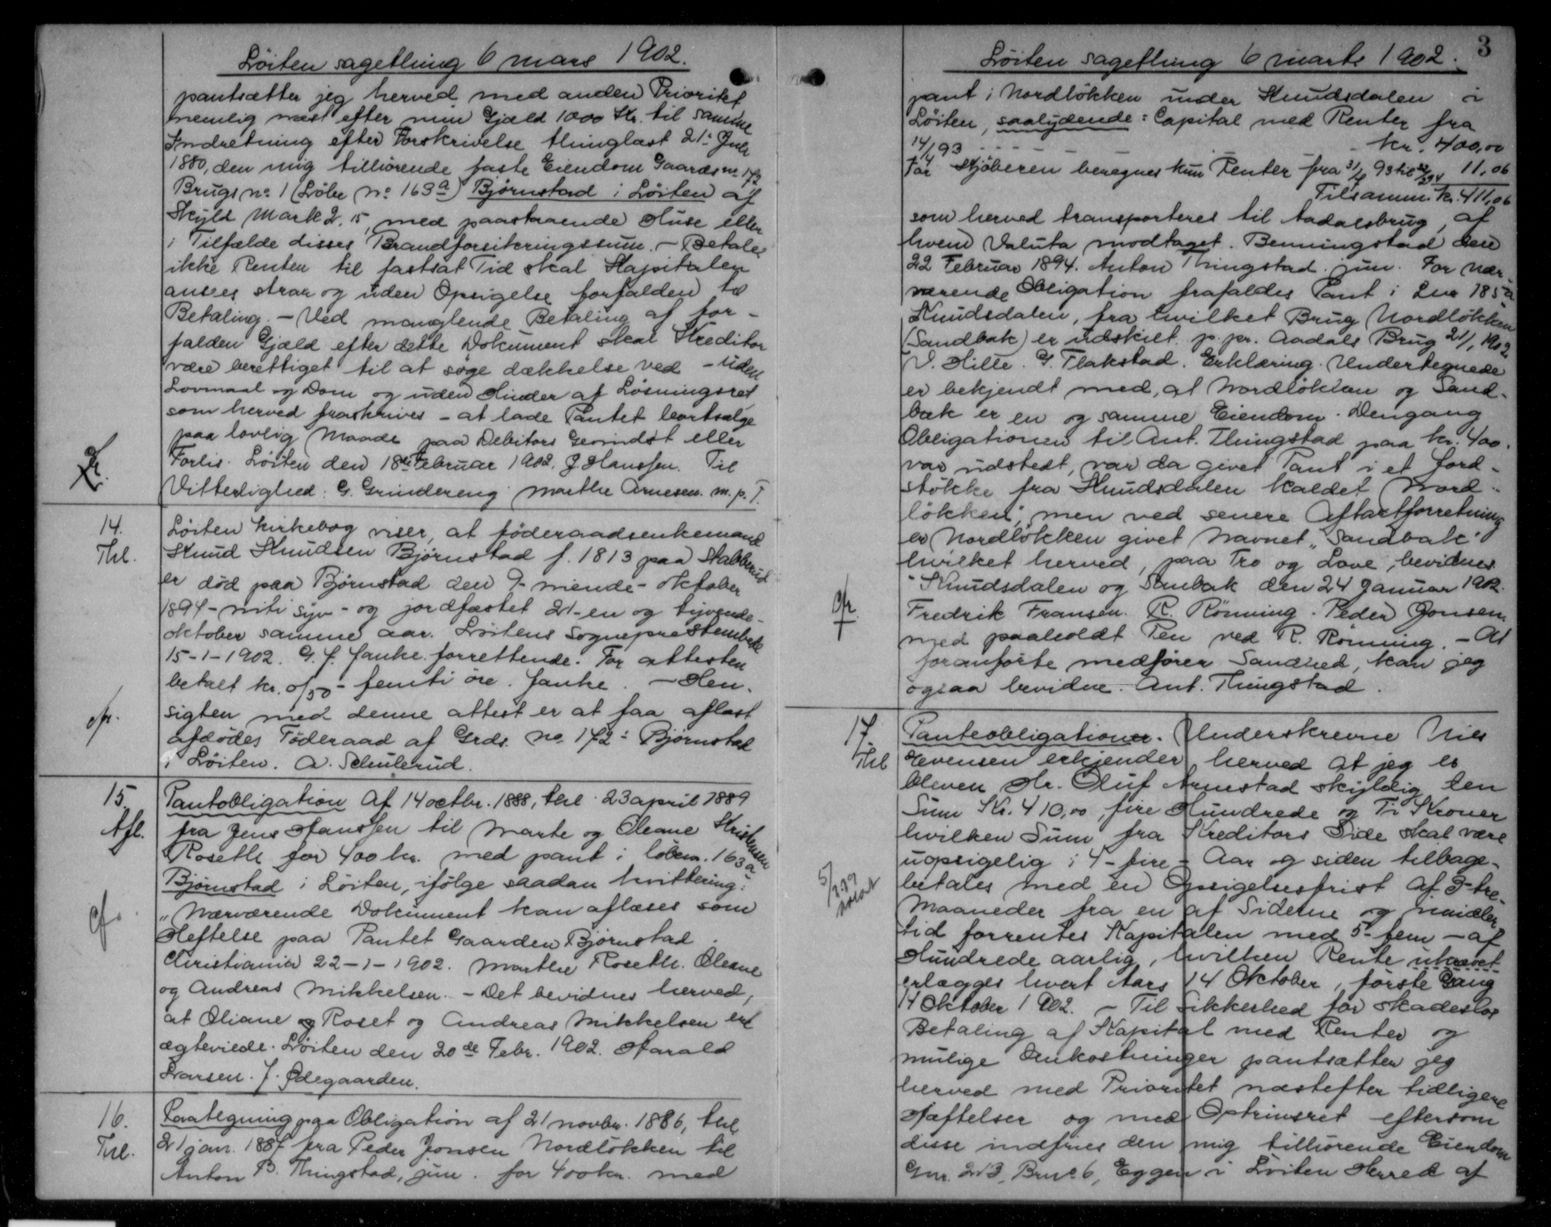 Löiten sagetling 6 mars 1902.
pantsætter jeg herved med anden Prioritet
nemlig næst efter min Gjæld 1000 Kr. til samme
Indretning efter Forskrivelse thinglæst 21. Juli
1880, den mig tilhörende faste Eiendom Gaards nr. 172
Brugs no. 1 (Löbe No. 163a) Björnstad i Löiten af
Skyld Mark 2,15, med paastaaende Huse eller
i Tilfælde disses Brandforsikringssum. – Betales
ikke Renten til fastsat Tid skal Kapitalen
ansees strax og uden Opsigelse forfalden til
Betaling. – Ved manglende Betaling af for-
falden Gjæld efter dette Dokument skal Kreditor
være berettiget til at söge dækkelse ved – uden
Lovmaal og Dom og uden Hinder af Lösningsret
som herved fraskrives – at lade Pantet bortsælge
paa lovlig Maade paa Debitors Gevindst eller
Forlis. Löiten den 18de Februar 1902. J Hanssen. Til
Vitterlighed: G. Grindereng Marthe Arnesen. m. p. P.
14.
Thl.
Löiten Kirkebog viser, at föderaadsenkemand
Knud Knudsen Björnstad f. 1813 paa Stabberud
er död paa Börnstad den 9 – niende – oktober
1894 – niti syv – og jordfæstet 21 – en og tyvende –
oktober samme aar. Löitens Sognepræstembede
15-1-1902. G. F. Janke forrettende. For attesten
betalt kr. 0/50 – femti öre. Janke. – Hen-
sigten med denne attest er at faa aflæst
afdödes Föderaad af Grds. No. 172: Björnstad
i Löiten. A. Schulerud.
15.
Afl.
Pantobligation af 14 octbr. 1888, thl. 23 april 1889
fra Jens Hanssen til Marte og Oleane Kristensen
Roseth for 400 kr. med pant i löben. 163a
Björnstad i Löiten, ifölge saadan kvittering:
„Nærværende Dokument kan aflæses som
Heftelse paa Pantet Gaarden Björnstad.
Christiania 22-1-1902. Marthe Roseth. Oleane
og Andreas Mikkelsen. – Det bevidnes herved,
at Oliane Roset og Andreas Mikkelsen er
ægteviede. Löiten den 20de Febr. 1902. Harald
Larsen. J. Ödegaarden.
16.
Thl.
Paategning paa Obligation af 21 novbr. 1886, thl
21 jan. 1887 fra Peder Jonsen Nordlökken til
Anton B. Thingstad, jun. for 400 kr. med
3
Löiten sagetling 6 marts 1902.
pant i Nordlökken under Knudsdalen i
Löiten, saalydende: Capital med Renter fra
14/4 93 – – – – kr. 400,00
For Kjöberen beregnes kun Renter fra 11,06
Tilsamm. kr. 411,06
som herved transporteres til Aadalsbrug, af
hvem Valuta modtaget. Benningstad den
22 Februar 1894. Anton Thingstad jun. For nær-
værende Obligation frafaldes Pant i Lnr 185a
Knudsdalen, fra hvilket Brug Nordlökken
(Sandbak) er udskilt. p. pr. Aadals Brug 21/1 1902
V. Hille. G. Flakstad. Erklæring. Undertegnede
er bekjendt med, at Nordlökken og Sand-
bæk er en og samme Eiendom. Dengang
Obligationen til Ant. Thingstad paa kr. 400.
var udstedt, var da givet Pant i et Jord-
stökke fra Knudsdalen kaldet „Nord-
lökken", men ved senere Aftaktforretning
er Nordlökken givet Navnet „Sandbak"
hvilket herved, paa Tro og Love, bevidnes
Knudsdalen og Sandbak den 24 Januar 1902.
Fredrik Fransen. R. Rönning. Peder Jonsen
med paaholdt Pen ved R. Rönning. – At
foranförte medförer Sandhed, kan jeg
ogsaa bevidne. Ant. Thingstad.
17.
Thl
Panteobligationer. Underskrevne Nils
Evensen erkjender herved at jeg er
bleven Hr. Oluf Arnestad skyldig den
Sum Kr. 410,00, fire Hundrede og Ti Kroner
hvilken Sum fra Kreditors Side skal være
uopsigelig i 4 – fire – Aar og siden tilbage-
betales med en Opsigelsesfrist af 3 – tre –
Maaneder fra en af Siderne og imidler-
tid forrentes Kapitalen med 5 – fem – af
Hundrede aarlig, hvilken Rente ukrævet
erlægges hvert Aars 14 Oktober, förste Gang
14 Oktober 1902. – Til Sikkerhed for skadeslös
Betaling af Kapital med Renter og
mulige Omkostninger pantsætter jeg
herved med Prioritet næstefter tidligere
Hæftelser og med Optrinsret eftersom
disse indfries den mig tilhörende Eiendom
Gnr. 213, Brn. 6, Eggen i Löiten Herred af